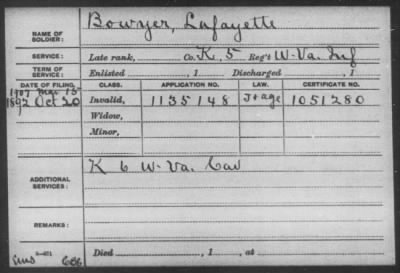 NAME OF SOLDIER: Bowyer, Lafayette
SERVICE: Late rank, Co. K, 5 Reg't W. Va. Inf
TERM OF SERVICE: Enlisted , 1 Discharged , 1
DATE OF FILING. CLASS. APPLICATION NO. LAW. CERTIFICATE NO.
1907 Mar 15
1892 Oct 20 Invalid, 1135148 J & age 1051280
Widow,
Minor,
ADDITIONAL SERVICES: K 6 W. Va. Cav
REMARKS:
Died , 1 , at
3-401